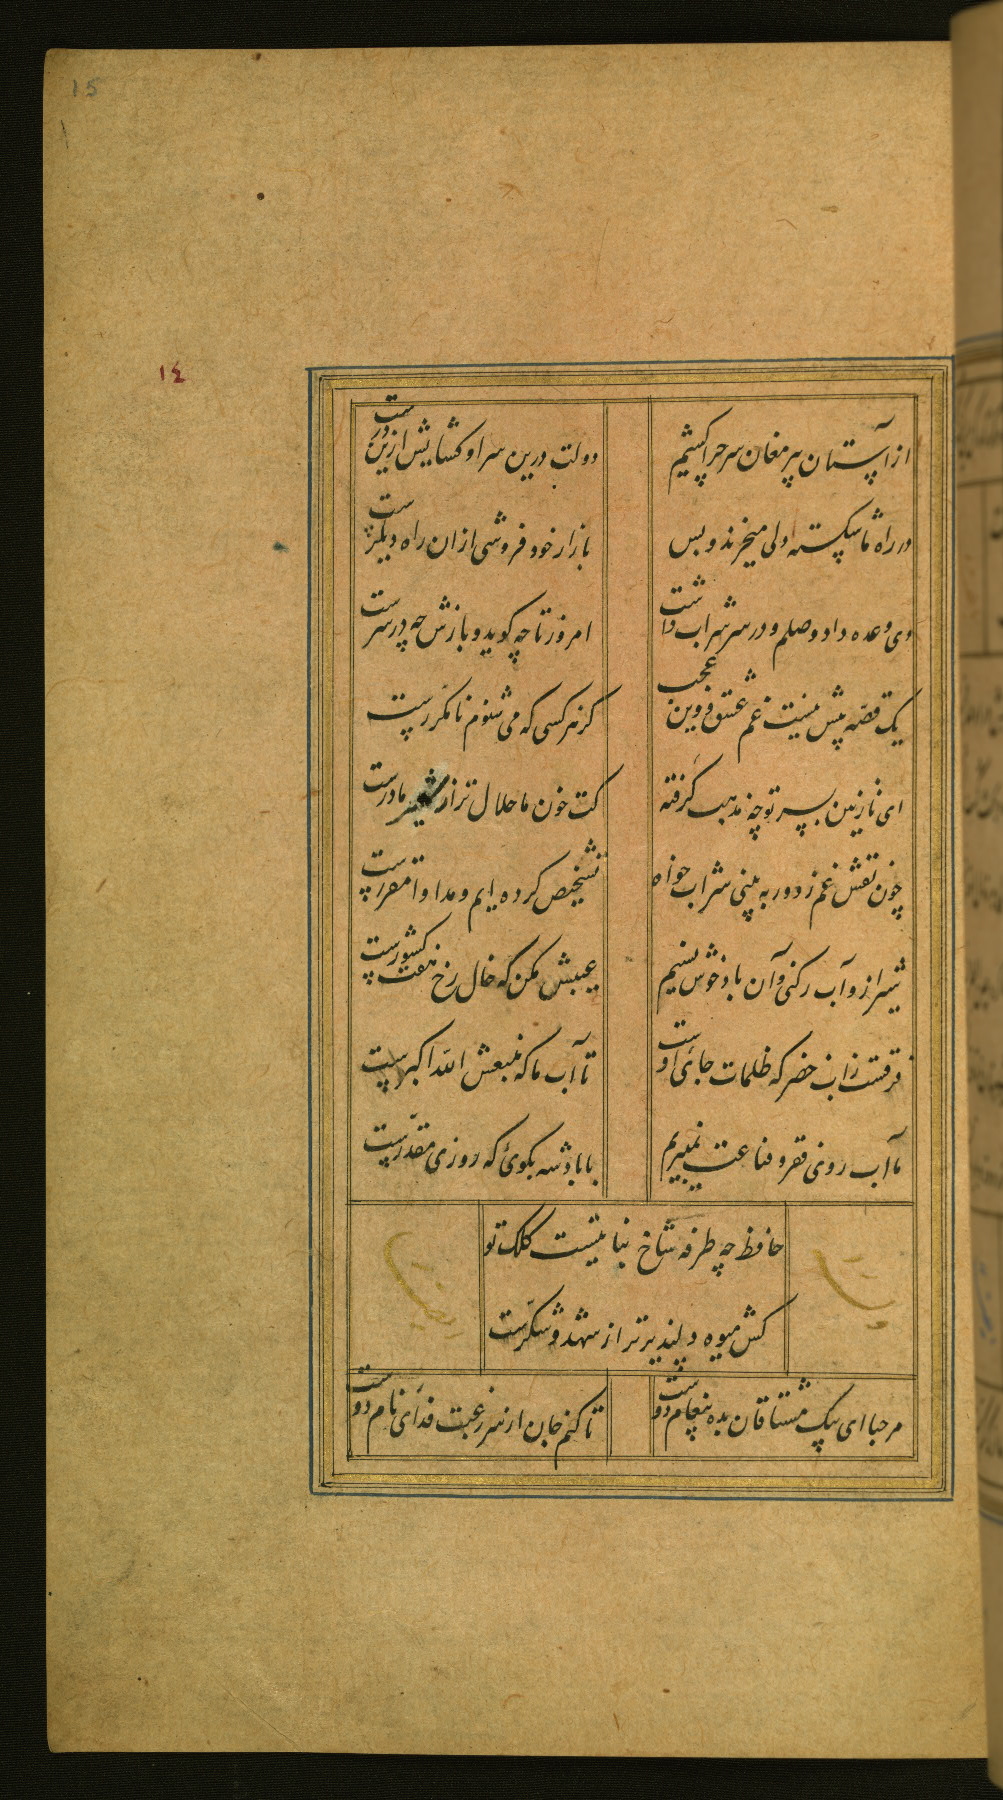 15
١٤
از آستان پیر مغان سر چرا کشیم
دولت درین سرا و کشایش ازین درست
در راه ما شکسته دلی میخرند و بس
بازار خود فروشی ازان راه دیکرست
دی وعده داد وصلم و در سر شراب داشت
امروز تا چه کوید و بازش چه در سرست
یک قصّه بیش نیست غم عشق و وین عجب
کز هر کسی که می شنوم نامکررست
ای نازنین پسر تو چه مذهب کرفته
کت خون ما حلال تر از شیر مادرست
چون نقش غم ز دور به بینی شراب خواه
تشخیص کرده ایم و مداوا مقررست
شیراز و آب رکنی و آن باد خوش نسیم
عیبش مکن که خال رخ هفت کشورست
فرقست زاب خضر که ظلمات جائ اوست
تا آب ما که منبعش الله اکبرست
ما آب روئ فقر و قناعت نمیبریم
با بادشه بکوئ که روزی مقدّرست
حافظ چه طرفه شاخ نباتیست کلک تو
کش میوه دلپذیرتر از شهد و شکّرست
مرحبا ای پیک مشتاقان بده پیغام دوست
تا کنم جان از سر رغبت فدای نام دوست